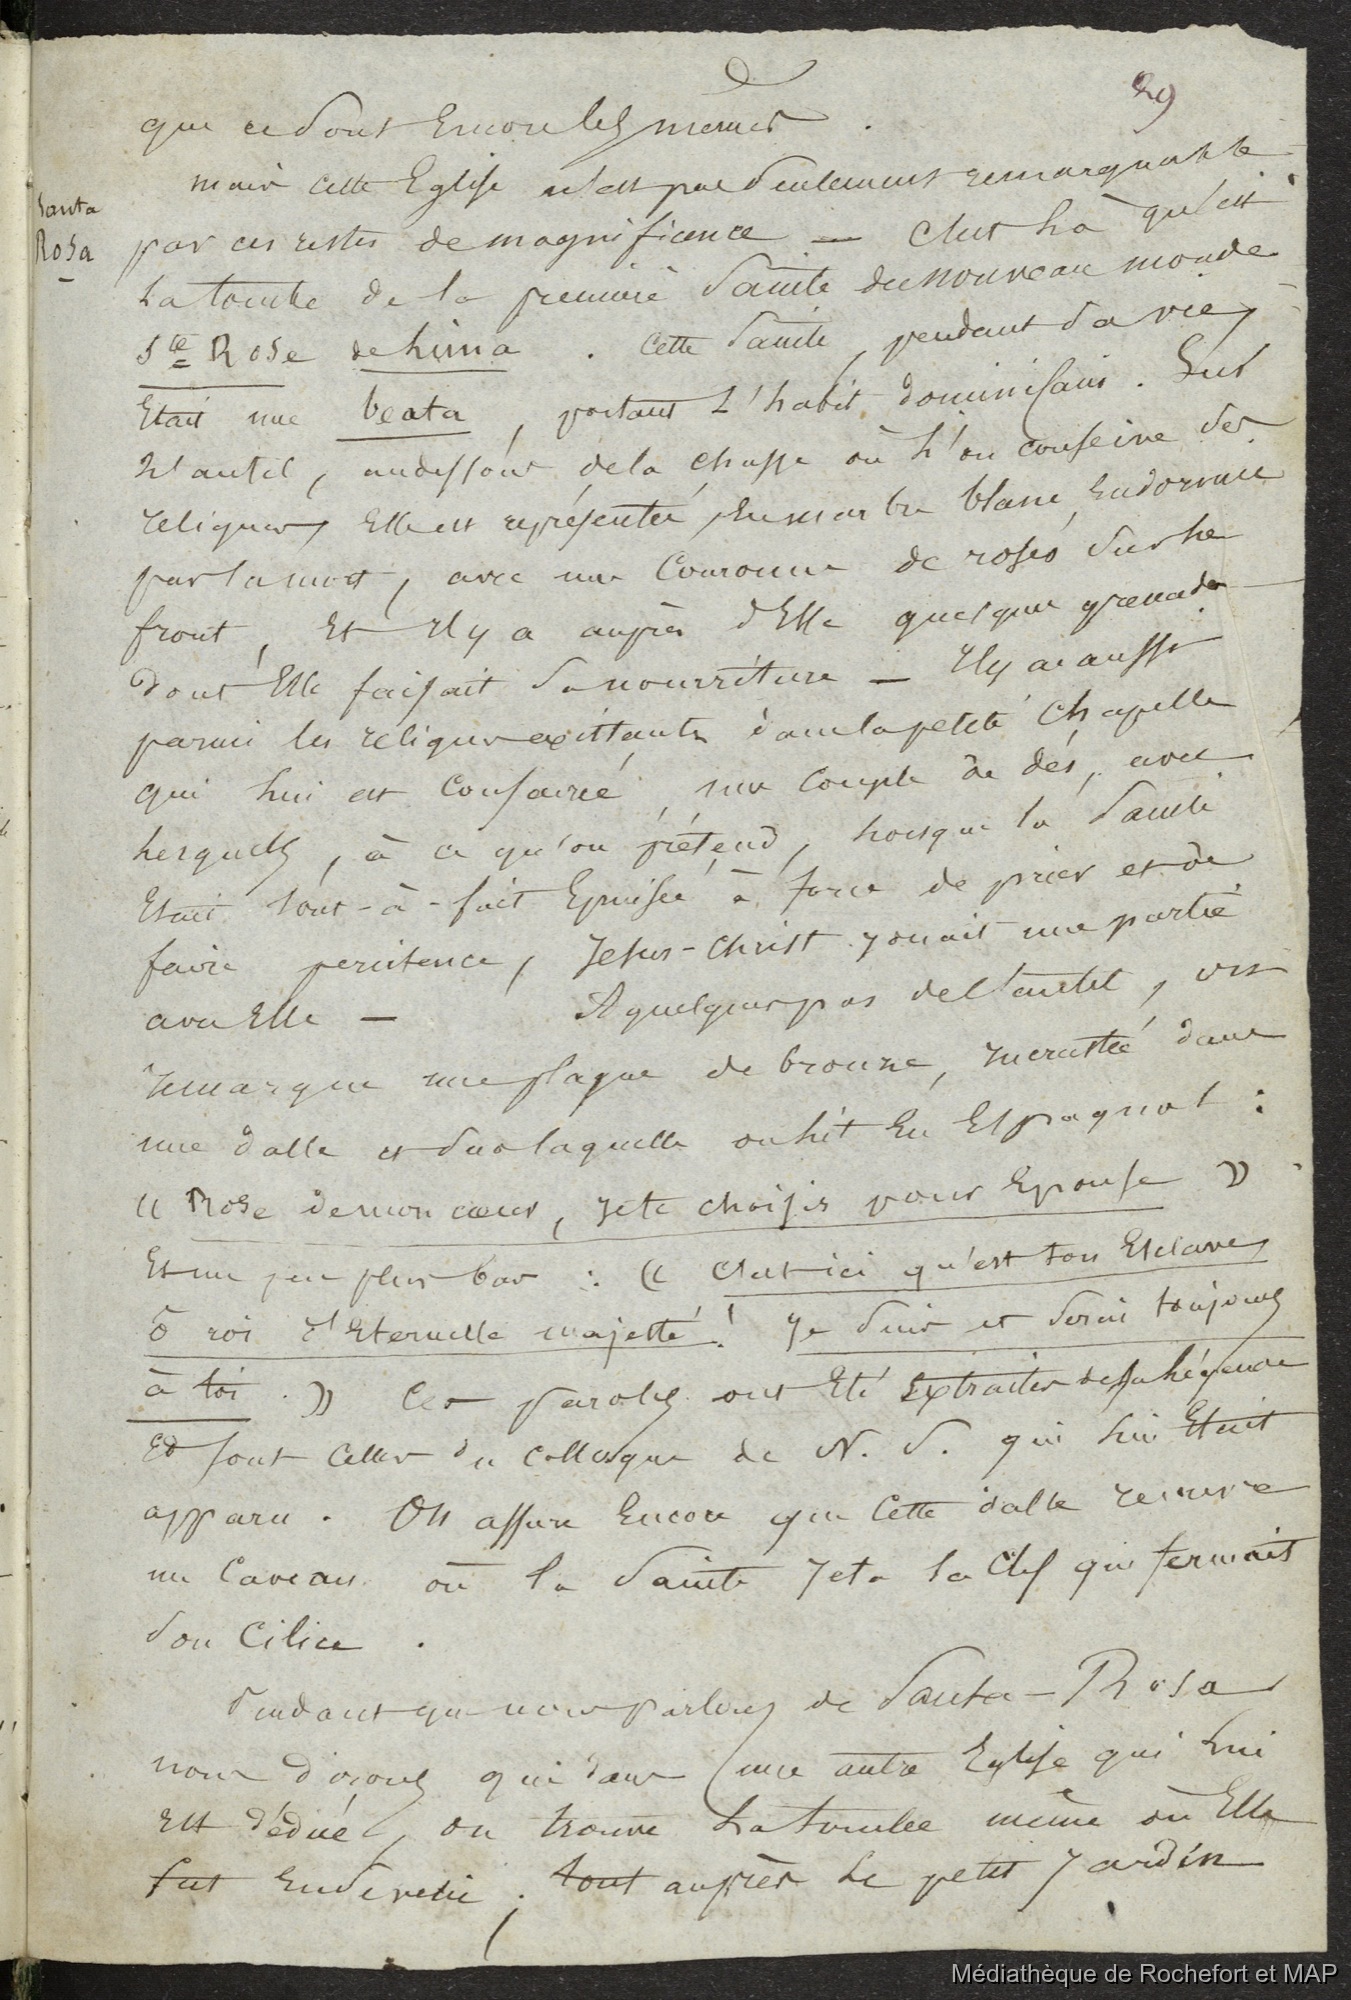 29
que ce sont encore les mêmes .
mais cette Eglise n'est pas seulement remarquable
Santa
Rosa
par ces restes de magnificence — C'est là qu'est
la tombe de la première Sainte du nouveau monde
Ste Rose de Lima . Cette Sainte, pendant sa vie,
Etait une beata, portant l'habit dominicain. Sur
l'autel, au dessous de la chasse où l'on conserve des
reliques, Elle est représentée, en marbre blanc, Endormie
par la mort, avec une Couronne de roses sur le
front, Et il y a auprès d'Elle quelques grenades
dont Elle faisait sa nourriture — Il y a aussi
parmi les reliques existantes dans la petite Chapelle
qui lui est Consacrée, une Couple de dés, avec
lesquels, à ce qu'on prétend, lorsque la Sainte
Etait tout-à-fait Epuisée à force de prier et de
faire penitence, Jesus-Christ jouait une partie
avec Elle — A quelques pas de l'autel, on
remarque une plaque de bronze, incrustée dans
une dalle et sur laquelle on lit En Espagnol :
« Rose de mon cœur, je te choisis pour Epouse »
Et un peu plus bas : « C'est ici qu'est ton Esclave,
ô roi d'Eternelle majesté ! Je suis et serai toujours
à toi . » Ces paroles ont Eté Extraites de sa légende
Et sont celles du colloque de N. S. qui lui Etait
apparu . On assure Encore que Cette dalle recouvre
un Caveau où la Sainte jeta la Clef qui fermait
son Cilice .
Pendant que nous parlons de Santa-Rosa
nous dirons que dans une autre Eglise qui lui
est dédiée, on trouve la tombe même où Elle
fut Ensevelie ; tout auprès le petit jardin
Médiathèque de Rochefort et MAP